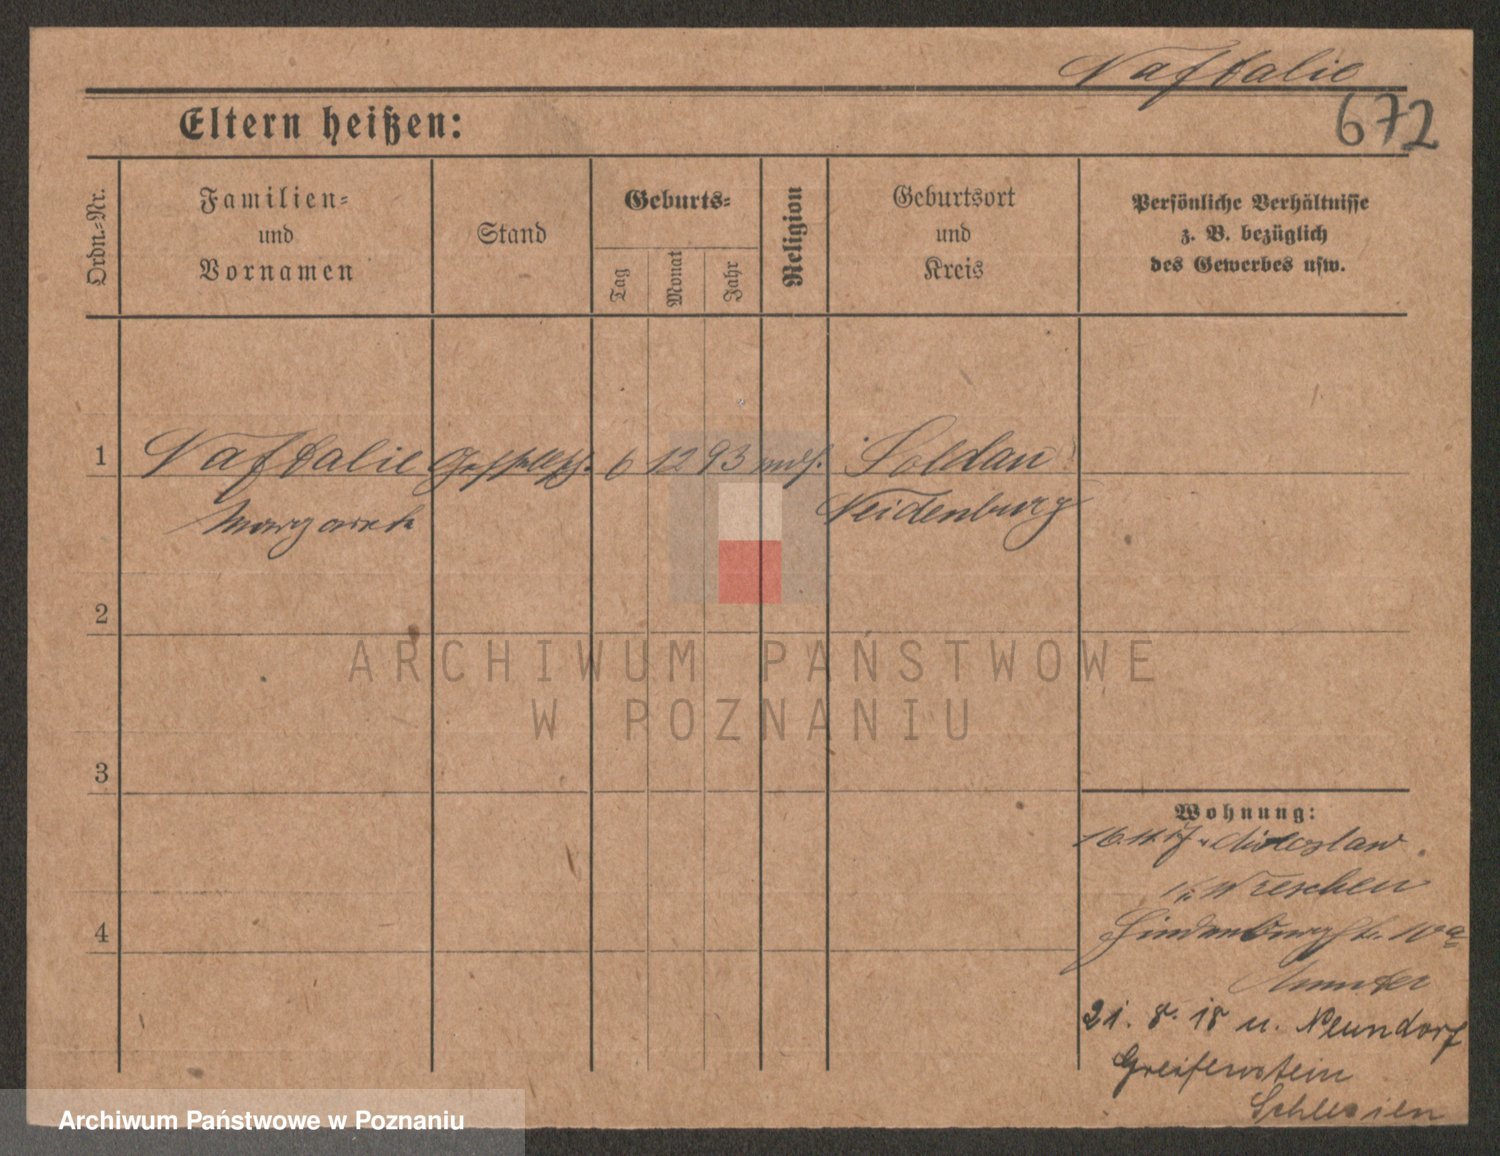 Naftalie
672
Eltern heißen:
Ordn.-Nr.
Familien-
und
Vornamen
Stand
Geburts-
Tag
Monat
Jahr
Religion
Geburtsort
und
Kreis
Persönliche Verhältnisse
z. B. bezüglich
des Gewerbes usw.
1 Naftalie 6 12 93 mos. Soldau
Margarete Neidenburg
2
3
4
Wohnung:
16. 11. 17 n. Miloslaw
Kr. Wreschen
Hindenburgstr. 10a
21. 8. 18 n. Neundorf
Greifenstein
Schlesien
ARCHIWUM PAŃSTWOWE
W POZNANIU
Archiwum Państwowe w Poznaniu